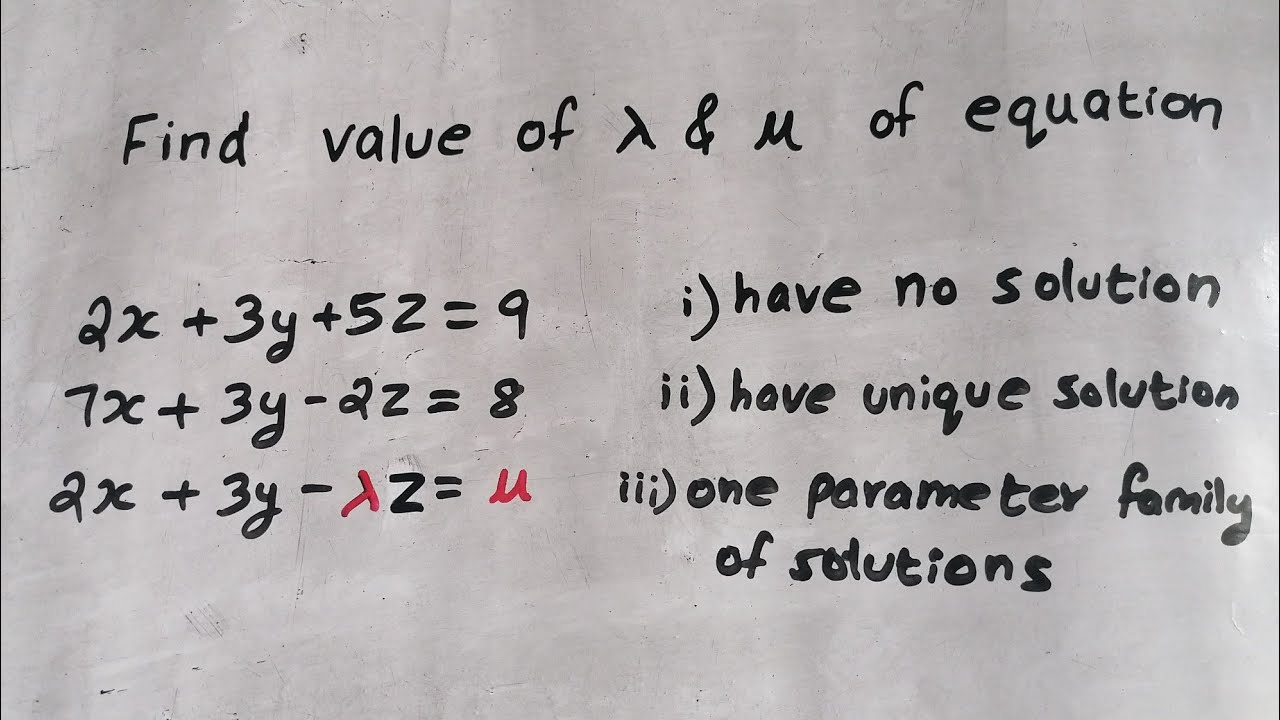 Find value of λ & μ of equation
2x + 3y + 5z = 9
7x + 3y - 2z = 8
2x + 3y - λz = μ
i) have no solution
ii) have unique solution
iii) one parameter family
of solutions